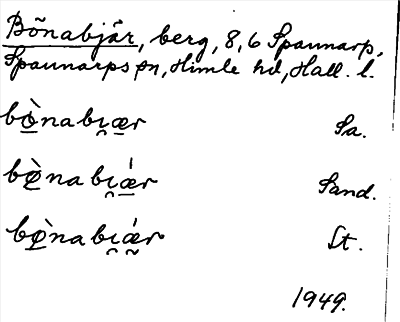 Bönabjär, berg, 8,6 Spannarp,
Spannarps sn, Himle hd, Hall. l.
bø̀nabi̯ær Sa.
bø̀nabi̯ǽr Sand.
bø̀nabi̯ǽr St.
1949.